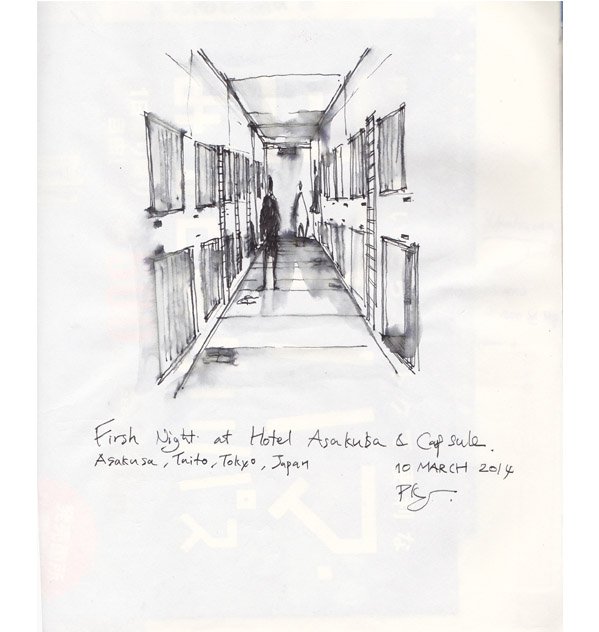 Firsh Night at Hotel Asakusa & Capsule.
Asakusa, Taito, Tokyo, Japan
10 MARCH 2014